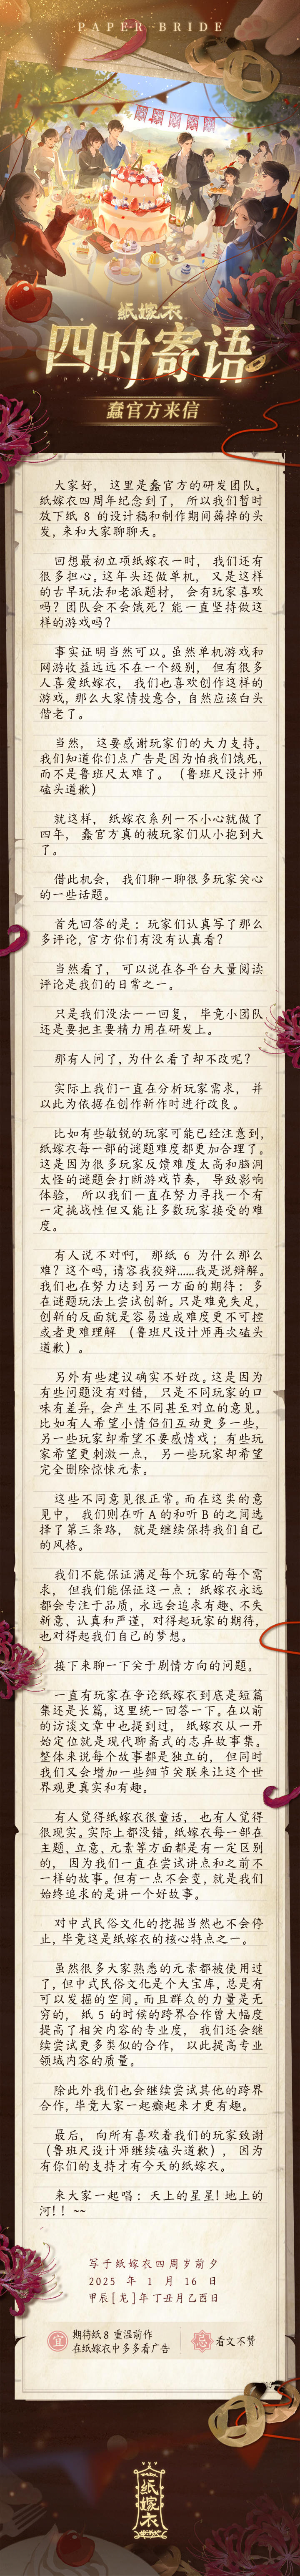 PAPER BRIDE
纸嫁衣
四时寄语
PAPER BRIDE
蠢官方来信
大家好，这里是蠢官方的研发团队。
纸嫁衣四周年纪念到了，所以我们暂时
放下纸 8 的设计稿和制作期间薅掉的头
发，来和大家聊聊天。
回想最初立项纸嫁衣一时，我们还有
很多担心。这年头还做单机，又是这样
的古早玩法和老派题材，会有玩家喜欢
吗？团队会不会饿死？能一直坚持做这
样的游戏吗？
事实证明当然可以。虽然单机游戏和
网游收益远远不在一个级别，但有很多
人喜爱纸嫁衣，我们也喜欢创作这样的
游戏，那么大家情投意合，自然应该白头
偕老了。
当然，这要感谢玩家们的大力支持。
我们知道你们点广告是因为怕我们饿死，
而不是鲁班尺太难了。（鲁班尺设计师
磕头道歉）
就这样，纸嫁衣系列一不小心就做了
四年，蠢官方真的被玩家们从小抱到大
了。
借此机会，我们聊一聊很多玩家关心
的一些话题。
首先回答的是：玩家们认真写了那么
多评论，官方你们有没有认真看？
当然看了，可以说在各平台大量阅读
评论是我们的日常之一。
只是我们没法一一回复，毕竟小团队
还是要把主要精力用在研发上。
那有人问了，为什么看了却不改呢？
实际上我们一直在分析玩家需求，并
以此为依据在创作新作时进行改良。
比如有些敏锐的玩家可能已经注意到，
纸嫁衣每一部的谜题难度都更加合理了。
这是因为很多玩家反馈难度太高和脑洞
太怪的谜题会打断游戏节奏，导致影响
体验，所以我们一直在努力寻找一个有
一定挑战性但又能让多数玩家接受的难
度。
有人说不对啊，那纸 6 为什么那么
难？这个吗，请容我狡辩......我是说辩解。
我们也在努力达到另一方面的期待：多
在谜题玩法上尝试创新。只是难免失足，
创新的反面就是容易造成难度更不可控
或者更难理解（鲁班尺设计师再次磕头
道歉）。
另外有些建议确实不好改。这是因为
有些问题没有对错，只是不同玩家的口
味有差异，会产生不同甚至对立的意见。
比如有人希望小情侣们互动更多一些，
另一些玩家却希望不要感情戏；有些玩
家希望更刺激一点，另一些玩家却希望
完全删除惊悚元素。
这些不同意见很正常。而在这类的意
见中，我们则在听 A 的和听 B 的之间选
择了第三条路，就是继续保持我们自己
的风格。
我们不能保证满足每个玩家的每个需
求，但我们能保证这一点：纸嫁衣永远
都会专注于品质，永远会追求有趣、不失
新意、认真和严谨，对得起玩家的期待，
也对得起我们自己的梦想。
接下来聊一下关于剧情方向的问题。
一直有玩家在争论纸嫁衣到底是短篇
集还是长篇，这里统一回答一下。在以前
的访谈文章中也提到过，纸嫁衣从一开
始定位就是现代聊斋式的志异故事集。
整体来说每个故事都是独立的，但同时
我们又会增加一些细节关联来让这个世
界观更真实和有趣。
有人觉得纸嫁衣很童话，也有人觉得
很现实。实际上都没错，纸嫁衣每一部在
主题、立意、元素等方面都是有一定区别
的，因为我们一直在尝试讲点和之前不
一样的故事。但有一点不会变，就是我们
始终追求的是讲一个好故事。
对中式民俗文化的挖掘当然也不会停
止，毕竟这是纸嫁衣的核心特点之一。
虽然很多大家熟悉的元素都被使用过
了，但中式民俗文化是个大宝库，总是有
可以发掘的空间。而且群众的力量是无
穷的，纸 5 的时候的跨界合作曾大幅度
提高了相关内容的专业度，我们还会继
续尝试更多类似的合作，以此提高专业
领域内容的质量。
除此外我们也会继续尝试其他的跨界
合作，毕竟大家一起癫起来才更有趣。
最后，向所有喜欢着我们的玩家致谢
（鲁班尺设计师继续磕头道歉），因为
有你们的支持才有今天的纸嫁衣。
来大家一起唱：天上的星星！地上的
河！！~~
写于纸嫁衣四周岁前夕
2025 年 1 月 16 日
甲辰［龙］年丁丑月乙酉日
宜
期待纸 8 重温前作
在纸嫁衣中多多看广告
忌
看文不赞
纸嫁衣